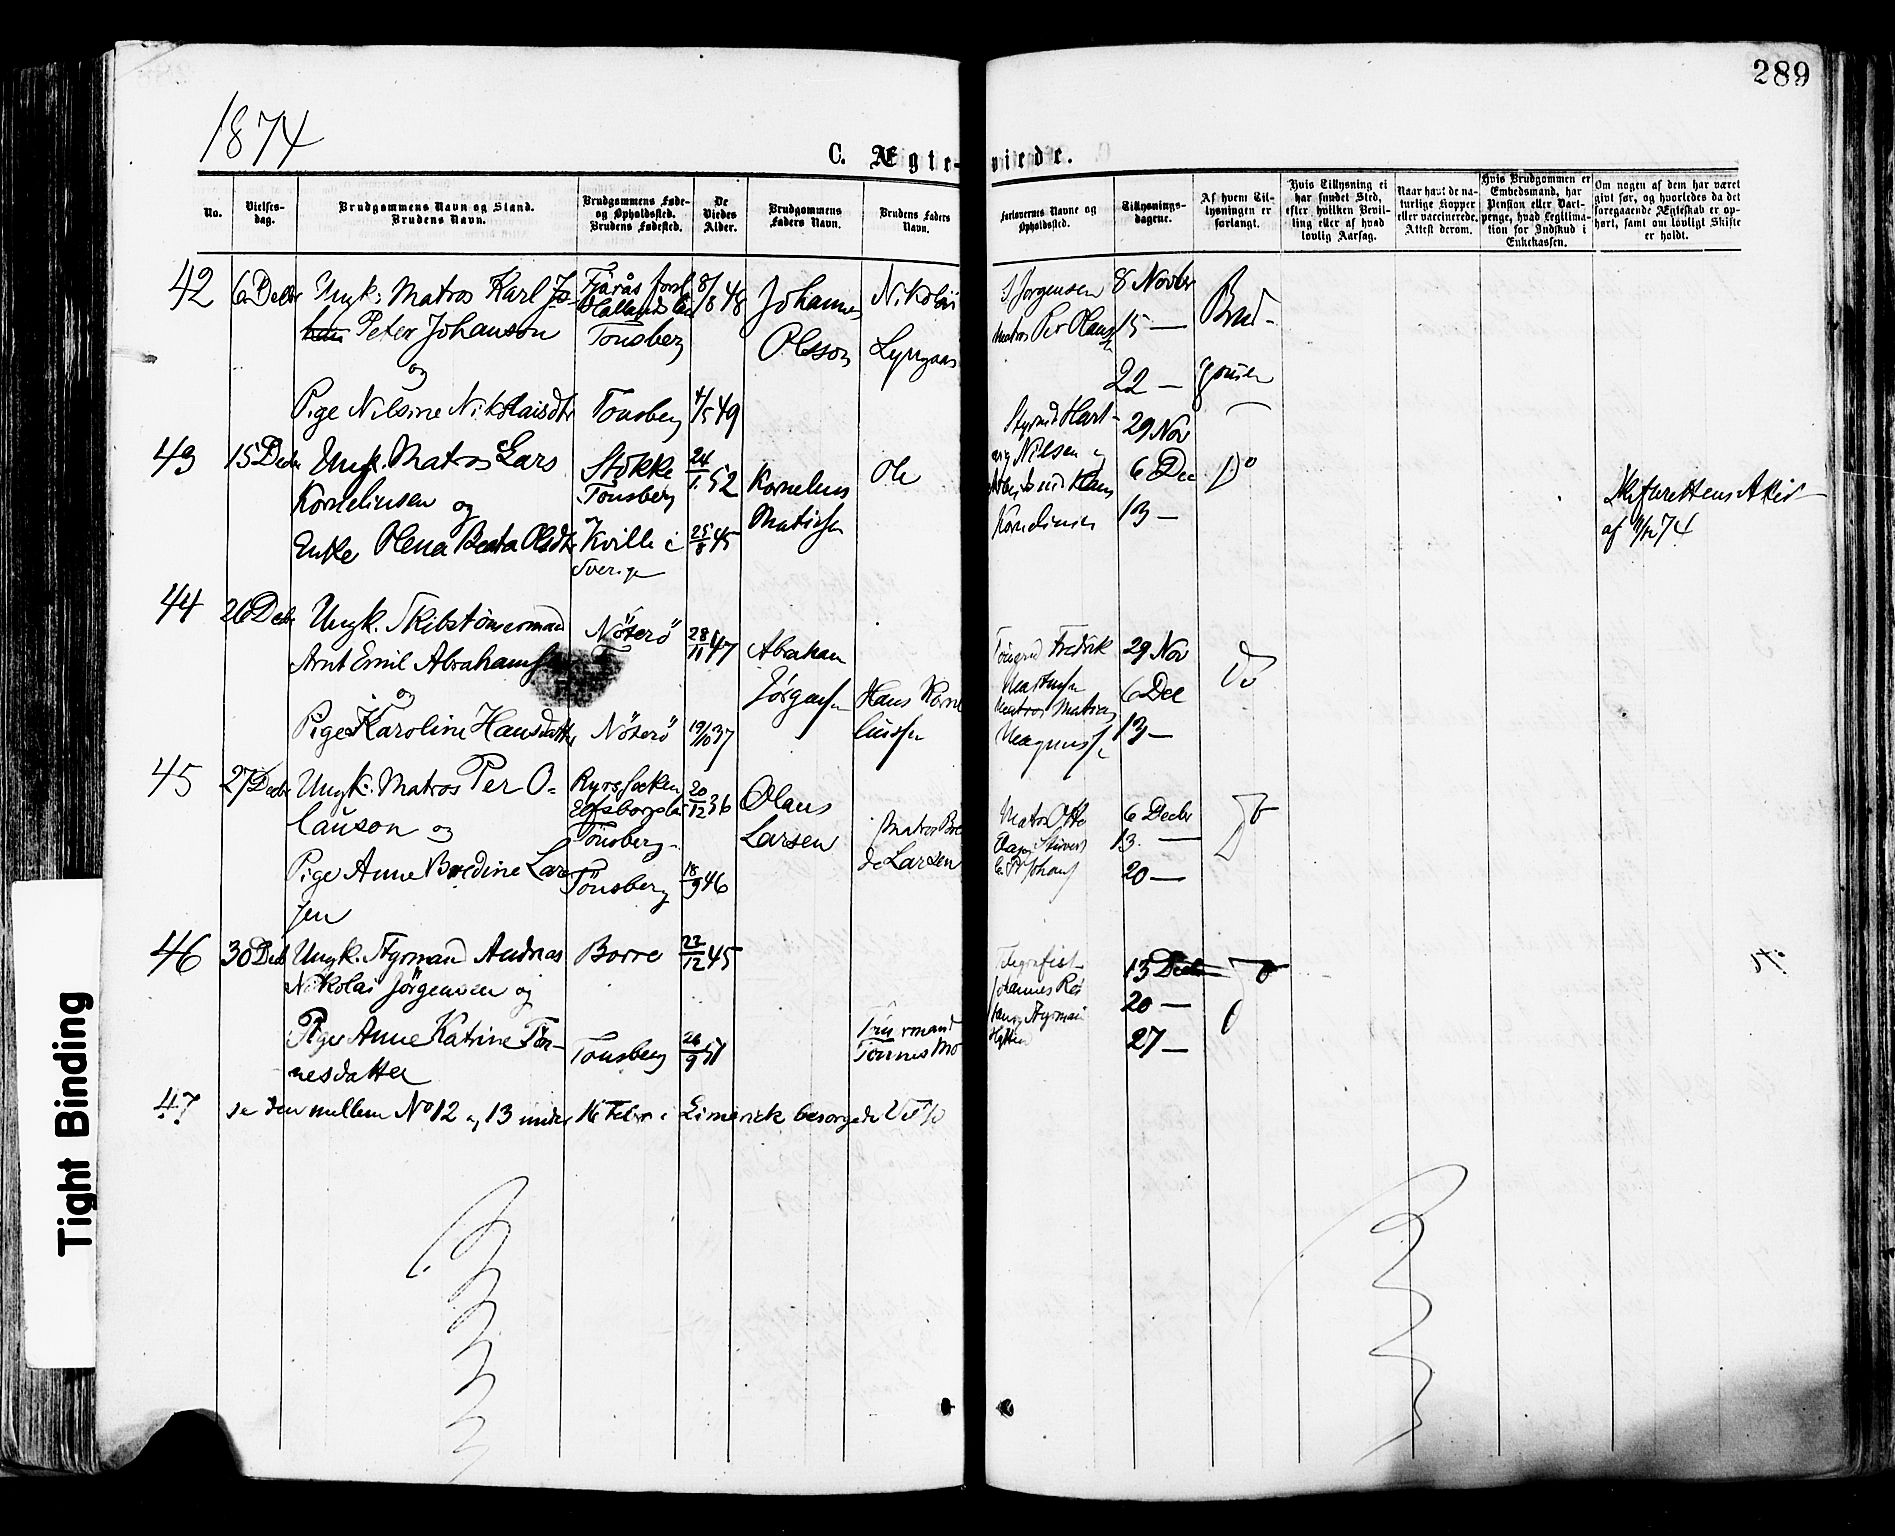 289
1874
C. Ægte-
viede.
No.
Vielses-
dag.
Brudgommens Navn og Stand.
Brudens Navn.
Brudgommens Føde-
og Opholdssted.
Brudens Fødested.
De
Viedes
Alder.
Brudgommens
Faders Navn.
Brudens Faders
Navn.
Forlovernes Navne og
Opholdssted.
Tillysnings-
dagene.
Af hvem Til-
lysningen er
forlangt.
Hvis Tillysning ei
har fundet Sted,
efter hvilken Bevil-
ling eller af hvad
lovlig Aarsag.
Naar havt de na-
turlige Kopper
eller vaccinerede.
Attest derom.
Hvis Brudgommen er
Embedsmand, har
Pension eller Vart-
penge, hvad Legitima-
tion for Indskud i
Enkekassen.
Om nogen af dem har været
givt før, og hvorledes da det
foregaaende Ægteskab er op-
hørt, samt om lovligt Skifte
er holdt.
42
6 Decbr
Ungk. Matros Karl Jo-
Peter Johanson
og
Pige Nilsine Nikolaisdtr
Fjärås forsl
Hallands län
Tønsberg
Tønsberg
8/8 48
4/5 49
Johannes
Olsson
Nikolai
Lyngaas
S Jørgensen
Matros Per Olaus
8 Novbr
15 —
22 —
Brud-
gommen
43
15 Decbr
Ungk. Matros Lars
Kornelinsen og
Enke Olena Beata Olsdtr
Stokke
Tønsberg
Kville i
Sverige
24/1 52
25/8 45
Kornelius
Matisen
Ole
Styrmd Hart-
vig Nilsen og
Arbeidsmd Hans
Kornelinsen
29 Nov
6 Dec
13 —
Do
Skifterettens Attest
af 11/12 74
44
26 Decbr
Ungk. Skibstømmermand
Arnt Emil Abrahamsen
og
Pige Karoline Hansdatter
Nøterø
Nøterø
28/11 47
19/10 37
Abraham
Jørgensen
Hans Korne
liussen
Tømmermd Fredrik
Martinsen
Matros Matias
Magnussen
29 Nov
6 Dec
13 —
Do
45
27 Decbr
Ungk. Matros Per O-
lauson og
Pige Anne Bredine Lar
sen
Ryrs socken
Elfsborgs län
Tønsberg
Tønsberg
20/12 36
18/9 46
Olaus
Larsen
Matros Bre
de Larsen
Matros Otto
6 Decbr
13. —
20 —
Do
46
30 Decb
Ungk. Styrmand Andreas
Nikolai Jörgensen og
Pige Anne Katrine Tør-
nesdatter
Borre
Tønsberg
22/12 45
26/9 51
Tømmermand
Tønnes Mo
Telegrafist
Johannes Ros
Styrman
Hytten
13 Decbr
20 —
27 —
Do
47
se den mellem No 12 og 13 under 16 Febr i Limerick besorgede Vielse
Tight Binding